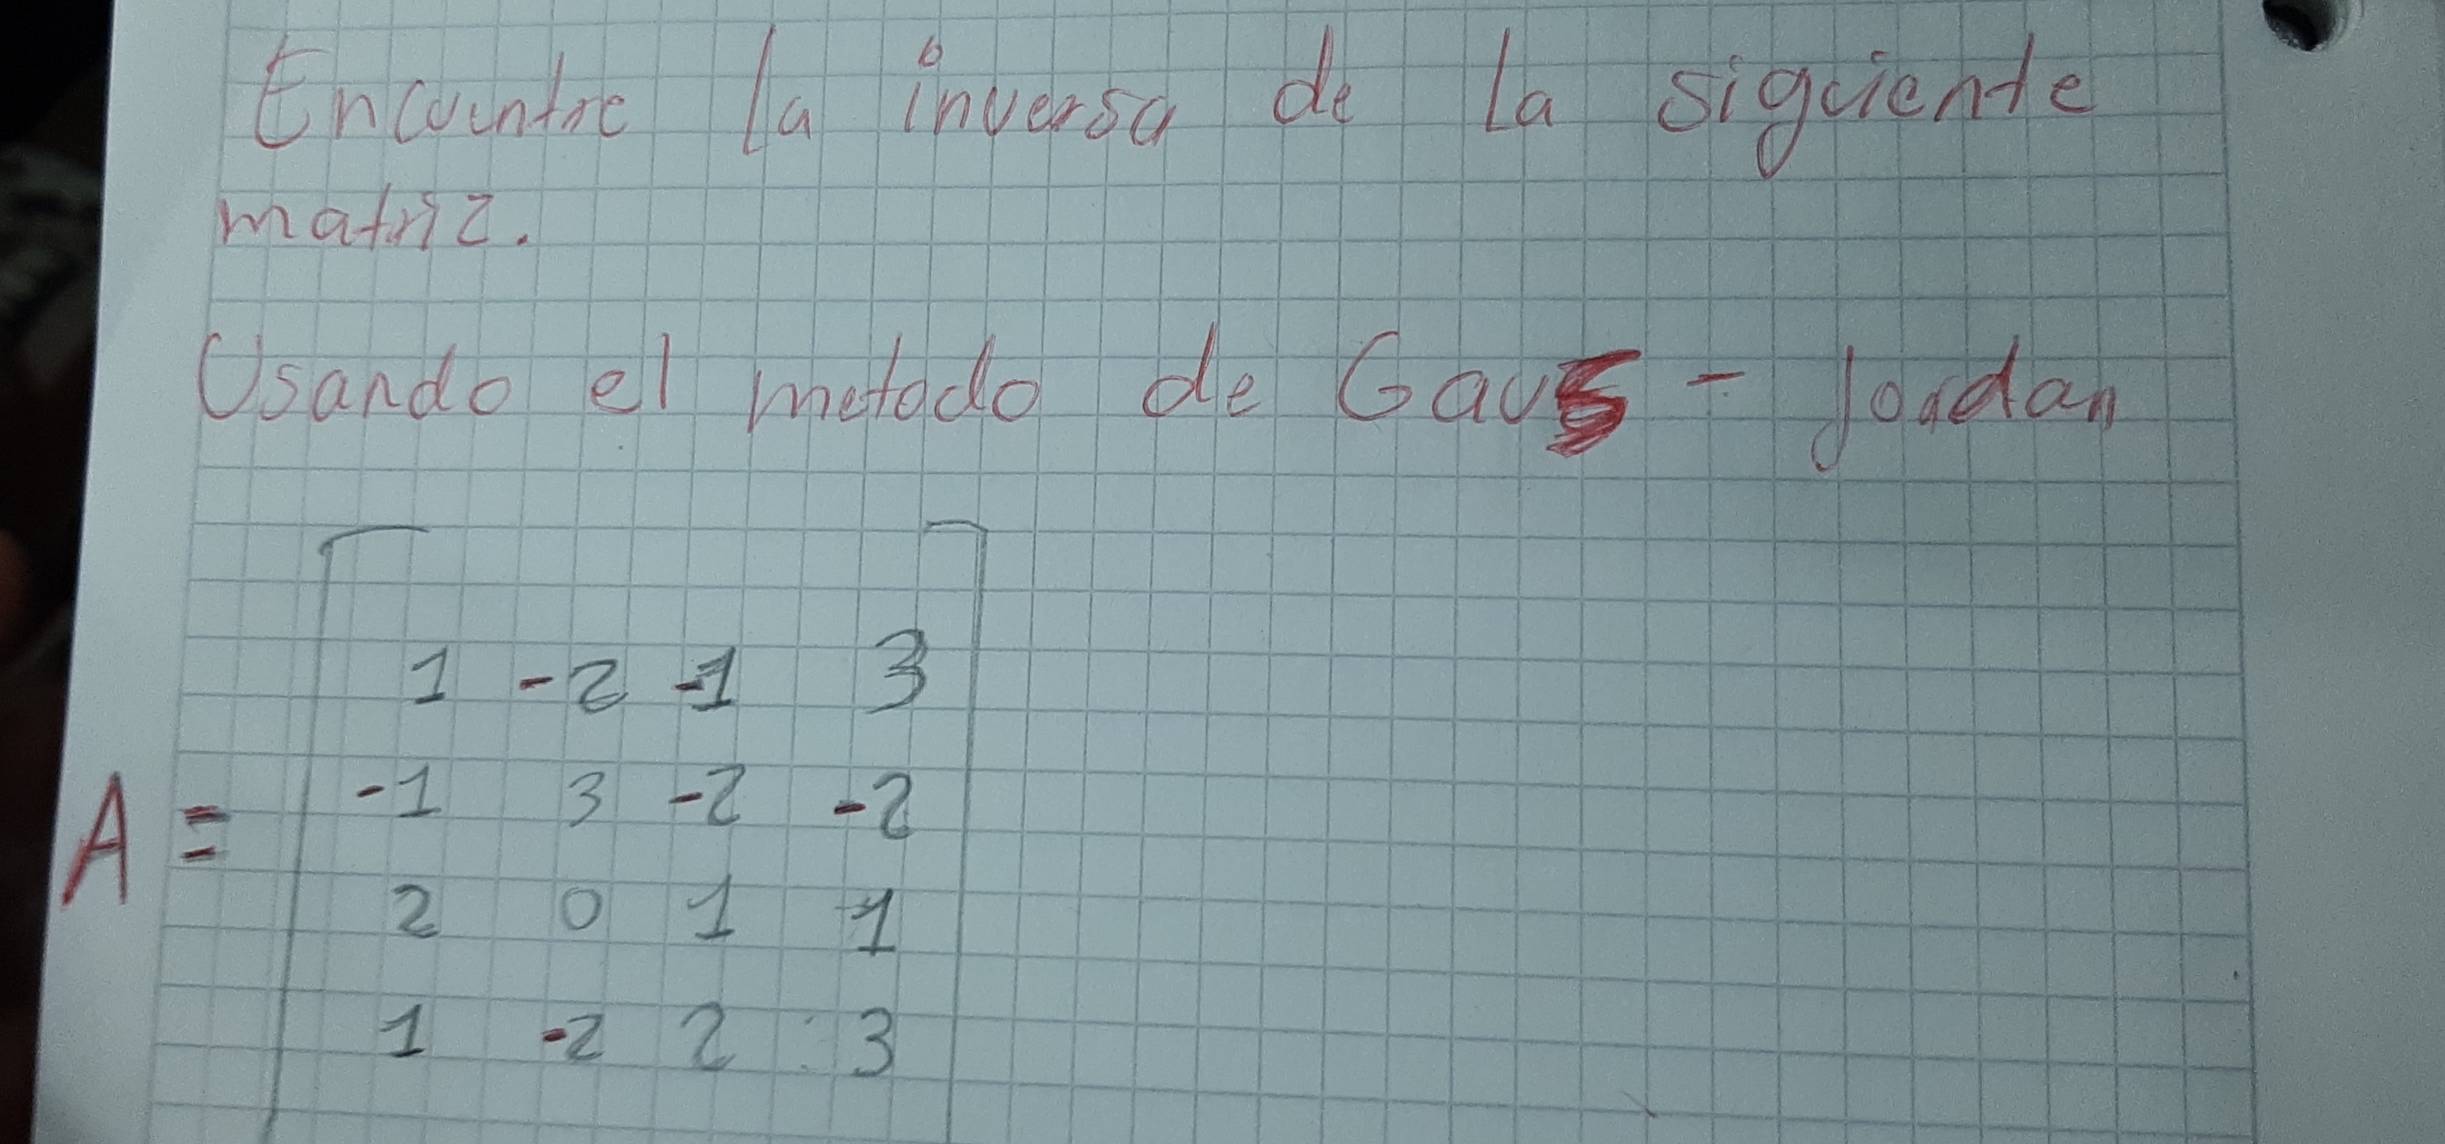 Encuentre la inversa de la siguiente
matriz.
Usando el metodo de Gaus - Jordan
1 -2 -1 3
A = -1 3 -2 -2
2 0 1 -1
1 -2 2 3